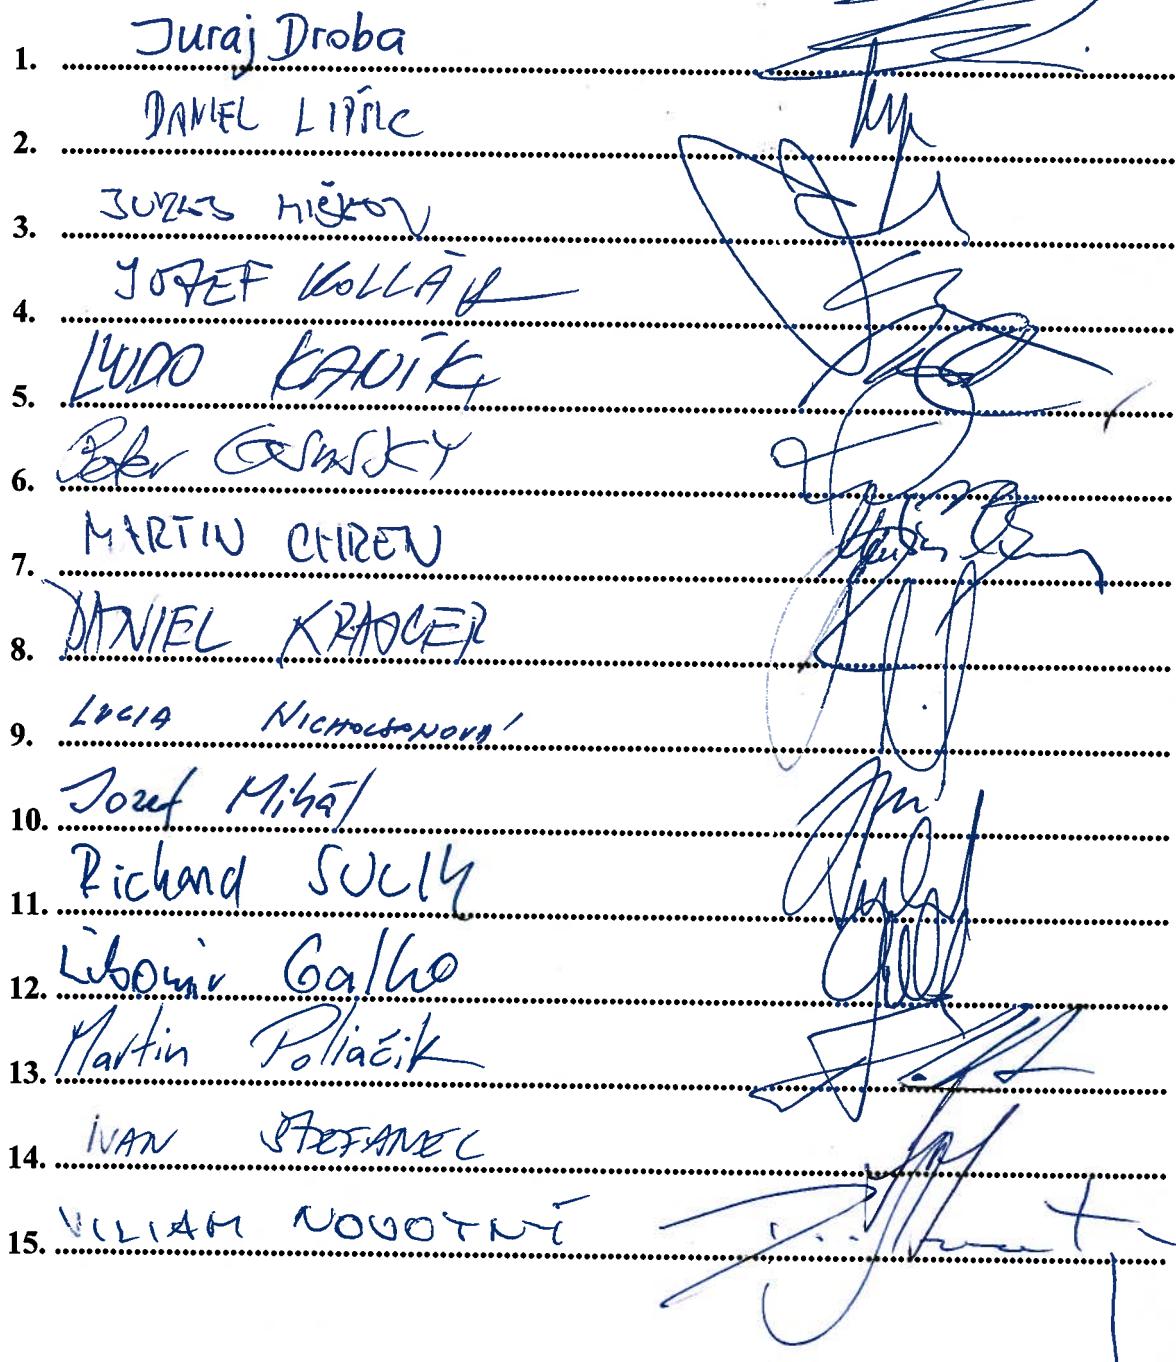 1. Juraj Droba
2. DANIEL LIPŠIC
3. JURAJ MIŠKOV
4. JOZEF KOLLÁR
5. ĽUDO KANÍK
6. Peter OSUSKÝ
7. MARTIN CHREN
8. DANIEL KRAJCER
9. LUCIA NICHOLSONOVÁ
10. Jozef Mihál
11. Richard SULÍK
12. Ľubomír Galko
13. Martin Poliačik
14. IVAN ŠTEFANEC
15. VILIAM NOVOTNÝ